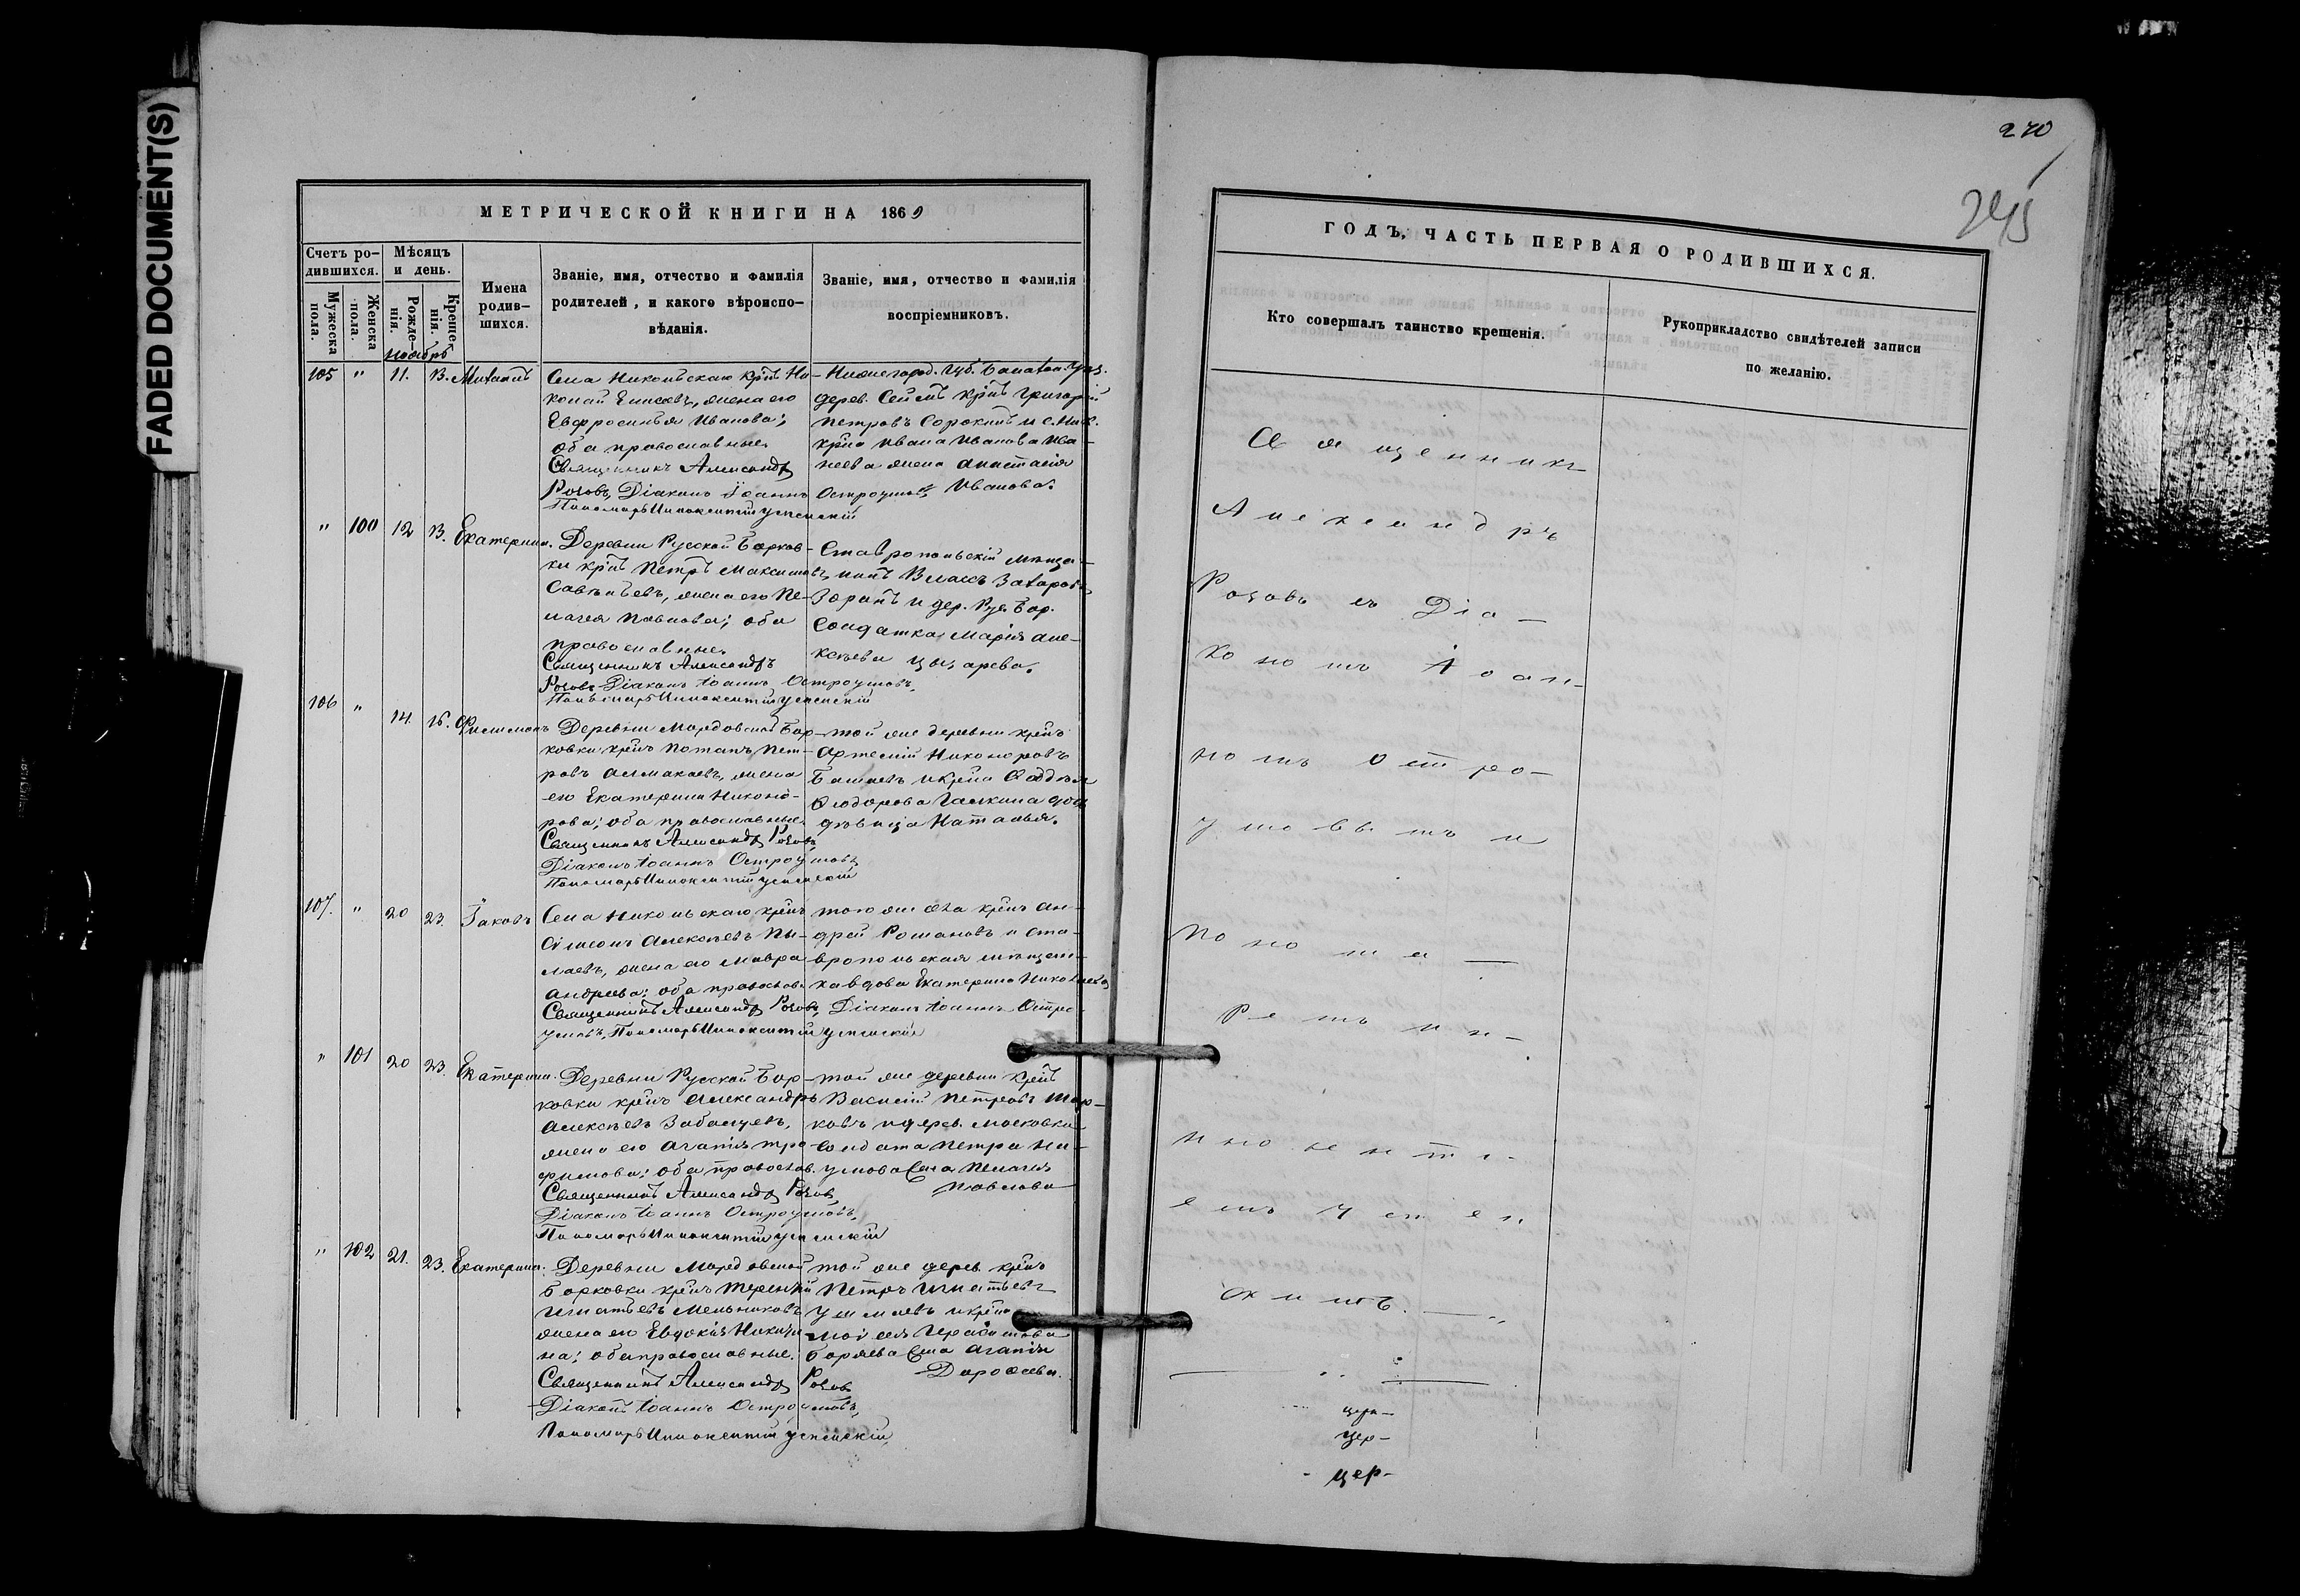 FADED DOCUMENT(S)
МЕТРИЧЕСКОЙ КНИГИ НА 1869
Счетъ ро-
дившихся.
Мужеска
пола.
Женска
пола.
Мѣсяцъ
и день.
Рожде-
нія.
Креще-
нія.
Имена
родив-
шихся.
Званіе, имя, отчество и фамилія
родителей, и какого вѣроиспо-
вѣданія.
Званіе, имя, отчество и фамилія
воспріемниковъ.
ноябрь
105 " 11. 13. Михаилъ
Села Никольскаго крнъ Ни-
колай Елисеевъ, жена его
Евфросинья Иванова;
оба православные.
Священникъ Александръ
Розовъ, Діаконъ Іоаннъ Остроумовъ,
Пономарь Иннокентій Успенскій
Нижегород. Губ.
дерев. Сеймъ крнъ Григорій
Петровъ Сорокинъ и с. Ник.
крна Ивана Иванова Ива-
нова жена Анастасія
Иванова.
" 100 12 13. Екатерина.
Деревни Русской Борков-
ки крнъ Петръ Максимовъ
Савельевъ, жена его Пе-
лагея Павлова; оба
православные.
Священникъ Александръ
Розовъ Діаконъ Іоаннъ Остроумовъ,
Пономарь Иннокентій Успенскій
Ставропольскій мѣща-
нинъ Власъ Захаровъ
Зоринъ и дер. Рус. Бор.
Солдатка Марія Але-
ксѣева Цызарева.
106 " 14. 16. Филимонъ
Деревни Мордовской Бор-
ковки крнъ Потапъ Пет-
ровъ Алмакаевъ, жена
его Екатерина Никоно-
рова; оба православные.
Священникъ Александръ Розовъ,
Діаконъ Іоаннъ Остроумовъ,
Пономарь Иннокентій Успенскій
той же деревни крнъ
Артемій Никоноровъ
и крна Фаддея
Ѳедорова Галкина дочь
дѣвица Наталья.
107. " 20 23. Іаковъ
Села Никольскаго крнъ
Симеонъ Алексѣевъ
жена его Мавра
Андреева; оба православ.
Священникъ Александръ Розовъ, Діаконъ Іоаннъ Остро-
умовъ, Пономарь Иннокентій Успенскій
того же села крнъ Ан-
дрей Романовъ и Ста-
вропольская мѣщан-
ка вдова Екатерина Николаева
" 101 20 23. Екатерина.
Деревни Русской Бор-
ковки крнъ Александръ
Алексѣевъ
жена его Агапія Тро-
фимова; оба православ.
Священникъ Александръ Розовъ,
Діаконъ Іоаннъ Остроумовъ,
Пономарь Иннокентій Успенскій
той же деревни крнъ
Василій Петровъ
и дерев. Московки
Солдата Петра На-
умова жена Пелагея
Павлова
" 102 21. 23. Екатерина.
Деревни Мордовской
Борковки крнъ Терентій
Игнатьевъ Мельниковъ
жена его Евдокія Никити-
на; оба православные.
Священникъ Александръ Розовъ
Діаконъ Іоаннъ Остроумовъ,
Пономарь Иннокентій Успенскій
той же дерев. крнъ
Петръ Игнатьевъ
и крна
Моисея Герасимова
жена Агапія
Дороѳеева.
270
245
ГОДЪ, ЧАСТЬ ПЕРВАЯ О РОДИВШИХСЯ.
Кто совершалъ таинство крещенія.
Рукоприкладство свидѣтелей записи
по желанію.
Священникъ
Александръ
Розовъ съ Діа-
кономъ Іоан-
номъ Остро-
умовымъ и
Поно ма-
ремъ Ин-
нокенті-
емъ Успен
скимъ.
цер-
цер-
цер-